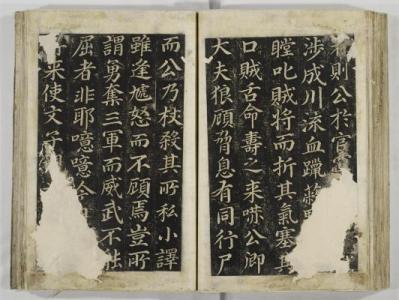 則公於官
涉成川流血
瞠叱賊將而折其氣塞其
口賊舌命壽之來公即
大夫狼顧脅息有同行尸
而公乃杖殺其所私小譯
雖逢怒而不顧焉豈所
謂勇奪三軍而威武不能
屈者非耶噫噫
來使文